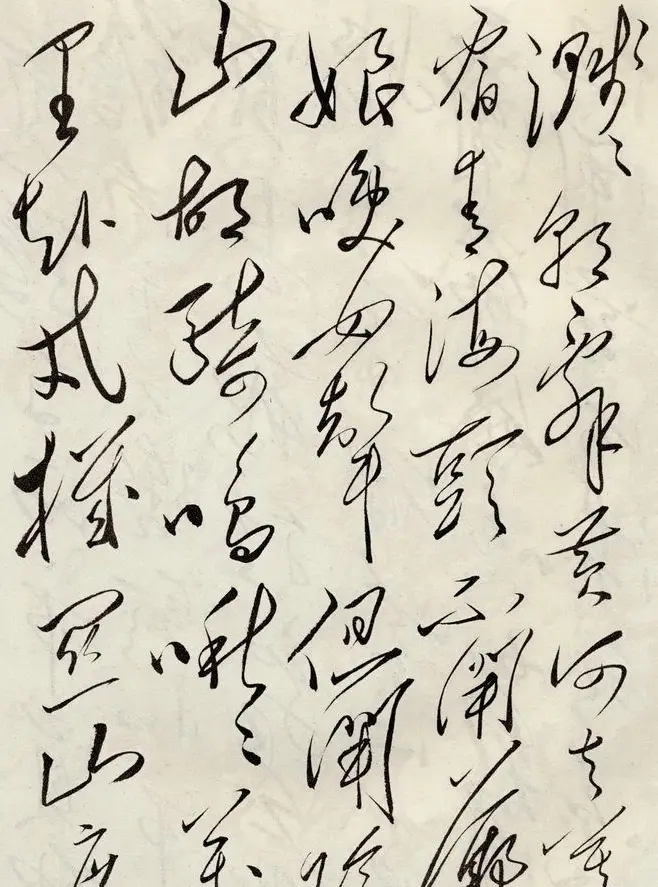 濺々朝辭黃河去暮
宿青海頭不聞爺
娘喚女聲但聞
山胡騎鳴啾々萬
里赴戎機關山度